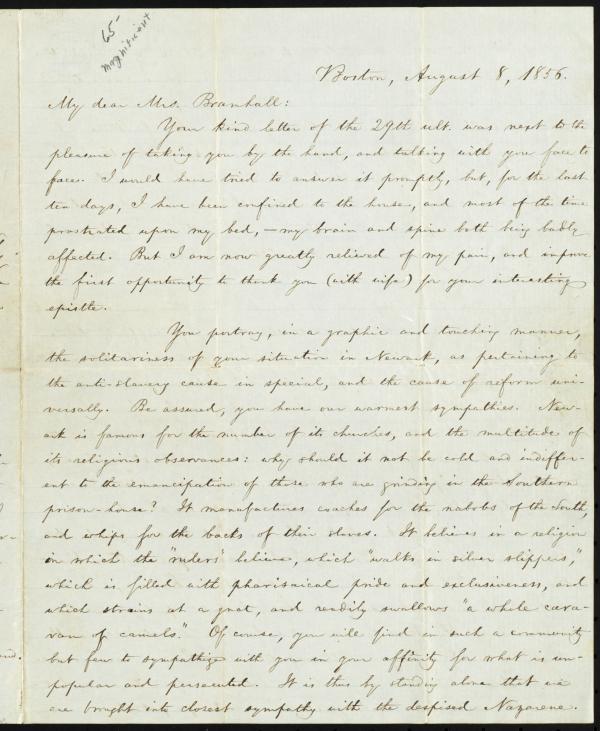 65-
magnificent
Boston, August 8, 1856.
My dear Mrs. Bramhall:
Your kind letter of the 29th ult. was next to the
pleasure of taking you by the hand, and talking with you face to
face. I would have tried to answer it promptly, but, for the last
ten days, I have been confined to the house, and most of the time
prostrated upon my bed, — my brain and spine both being badly
affected. But I am now greatly relieved of my pain, and improve
the first opportunity to thank you (with wife) for your interesting
epistle.
You portray, in a graphic and touching manner,
the solitariness of your situation in Newark, as pertaining to
the anti-slavery cause in special, and the cause of reform uni-
versally. Be assured, you have our warmest sympathies. New-
ark is famous for the number of its churches, and the multitude of
its religious observances: why should it not be cold and indiffer-
ent to the emancipation of those who are grinding in the Southern
prison-house? It manufactures coaches for the nabobs of the South,
and whips for the backs of their slaves. It believes in a religion
in which the "rulers" believe, which "walks in silver slippers,"
which is filled with pharisaical pride and exclusiveness, and
which strains at a gnat, and readily swallows "a whole cara-
van of camels." Of course, you will find in such a community
but few to sympathize with you in your affinity for what is un-
popular and persecuted. It is thus by standing alone that we
are brought into closest sympathy with the despised Nazarene.